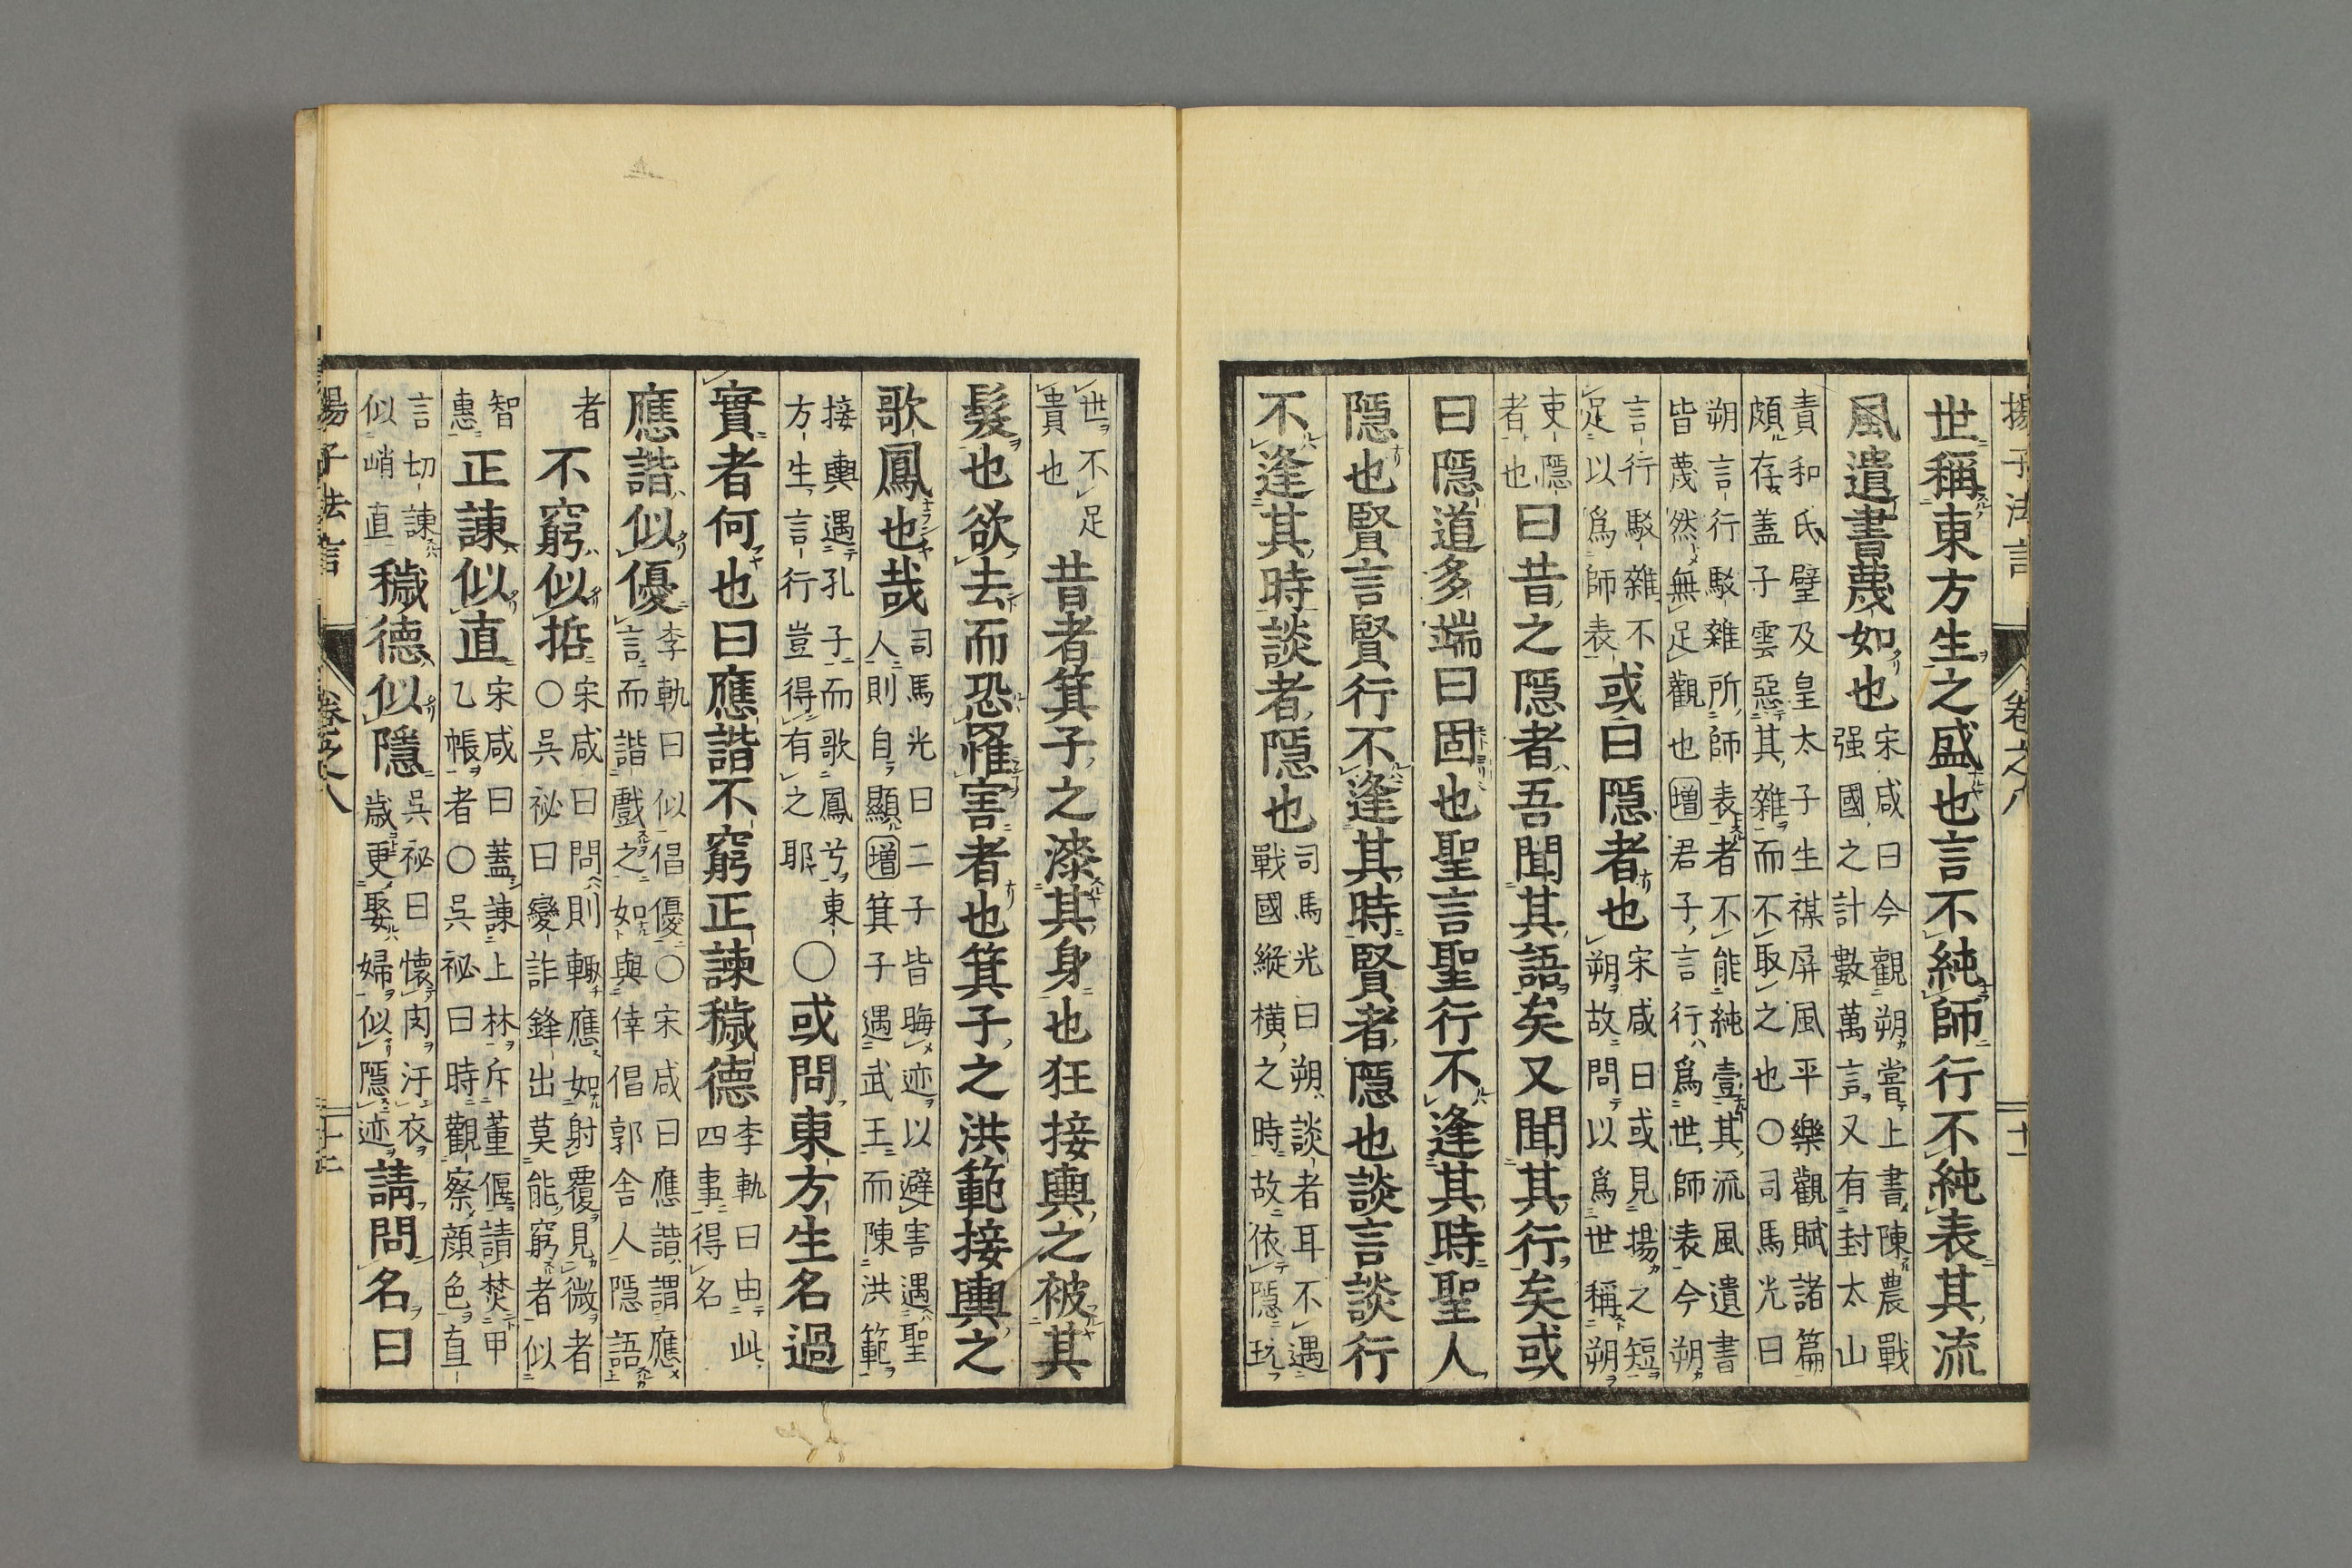 揚子法言 卷之八 十一
世稱東方生之盛也言不純師行不純表其流
風遺書蔑如也
宋咸曰今觀朔嘗上書陳農戰
强國之計數萬言又有封太山
責和氏璧及皇太子生禖屏風平樂觀賦諸篇
頗存蓋子雲惡其雜而不取之也○司馬光曰
朔言行駮雜所師表者不能純壹其流風遺書
皆蔑然無足觀也增君子言行爲世師表今朔
言行駮雜不
足以爲師表
或曰隱者也
宋咸曰或見揚之短
朔故問以爲世稱朔
吏隱
者也
曰昔之隱者吾聞其語矣又聞其行矣或
曰隱道多端曰固也聖言聖行不逢其時聖人
隱也賢言賢行不逢其時賢者隱也談言談行
不逢其時談者隱也
司馬光曰朔談者耳不遇
戰國縱橫之時故依隱玩
世不足
貴也
昔者箕子之漆其身也狂接輿之被其
髮也欲去而恐罹害者也箕子之洪範接輿之
歌鳳也哉
司馬光曰二子皆晦迹以避害遇聖
人則自顯增箕子遇武王而陳洪範
接輿遇孔子而歌鳳兮東
方生言行豈得有之耶
○或問東方生名過
實者何也曰應諧不窮正諫穢德
李軌曰由此
四事得名
應諧似優
李軌曰似倡優○宋咸曰應諧謂應
言而諧戲之如與倖倡郭舍人隱語
者
不窮似哲
宋咸曰問則輙應如射覆見微者
○吳祕曰變詐鋒出莫能窮者似
智
惠
正諫似直
宋咸曰蓋諫上林斥董偃請焚甲
乙帳者○吳祕曰時觀察顔色直
言切諫
似峭直
穢德似隱
吳祕曰懷肉汙衣
歲更娶婦似隱迹
請問名曰
揚子法言 卷之八 十二